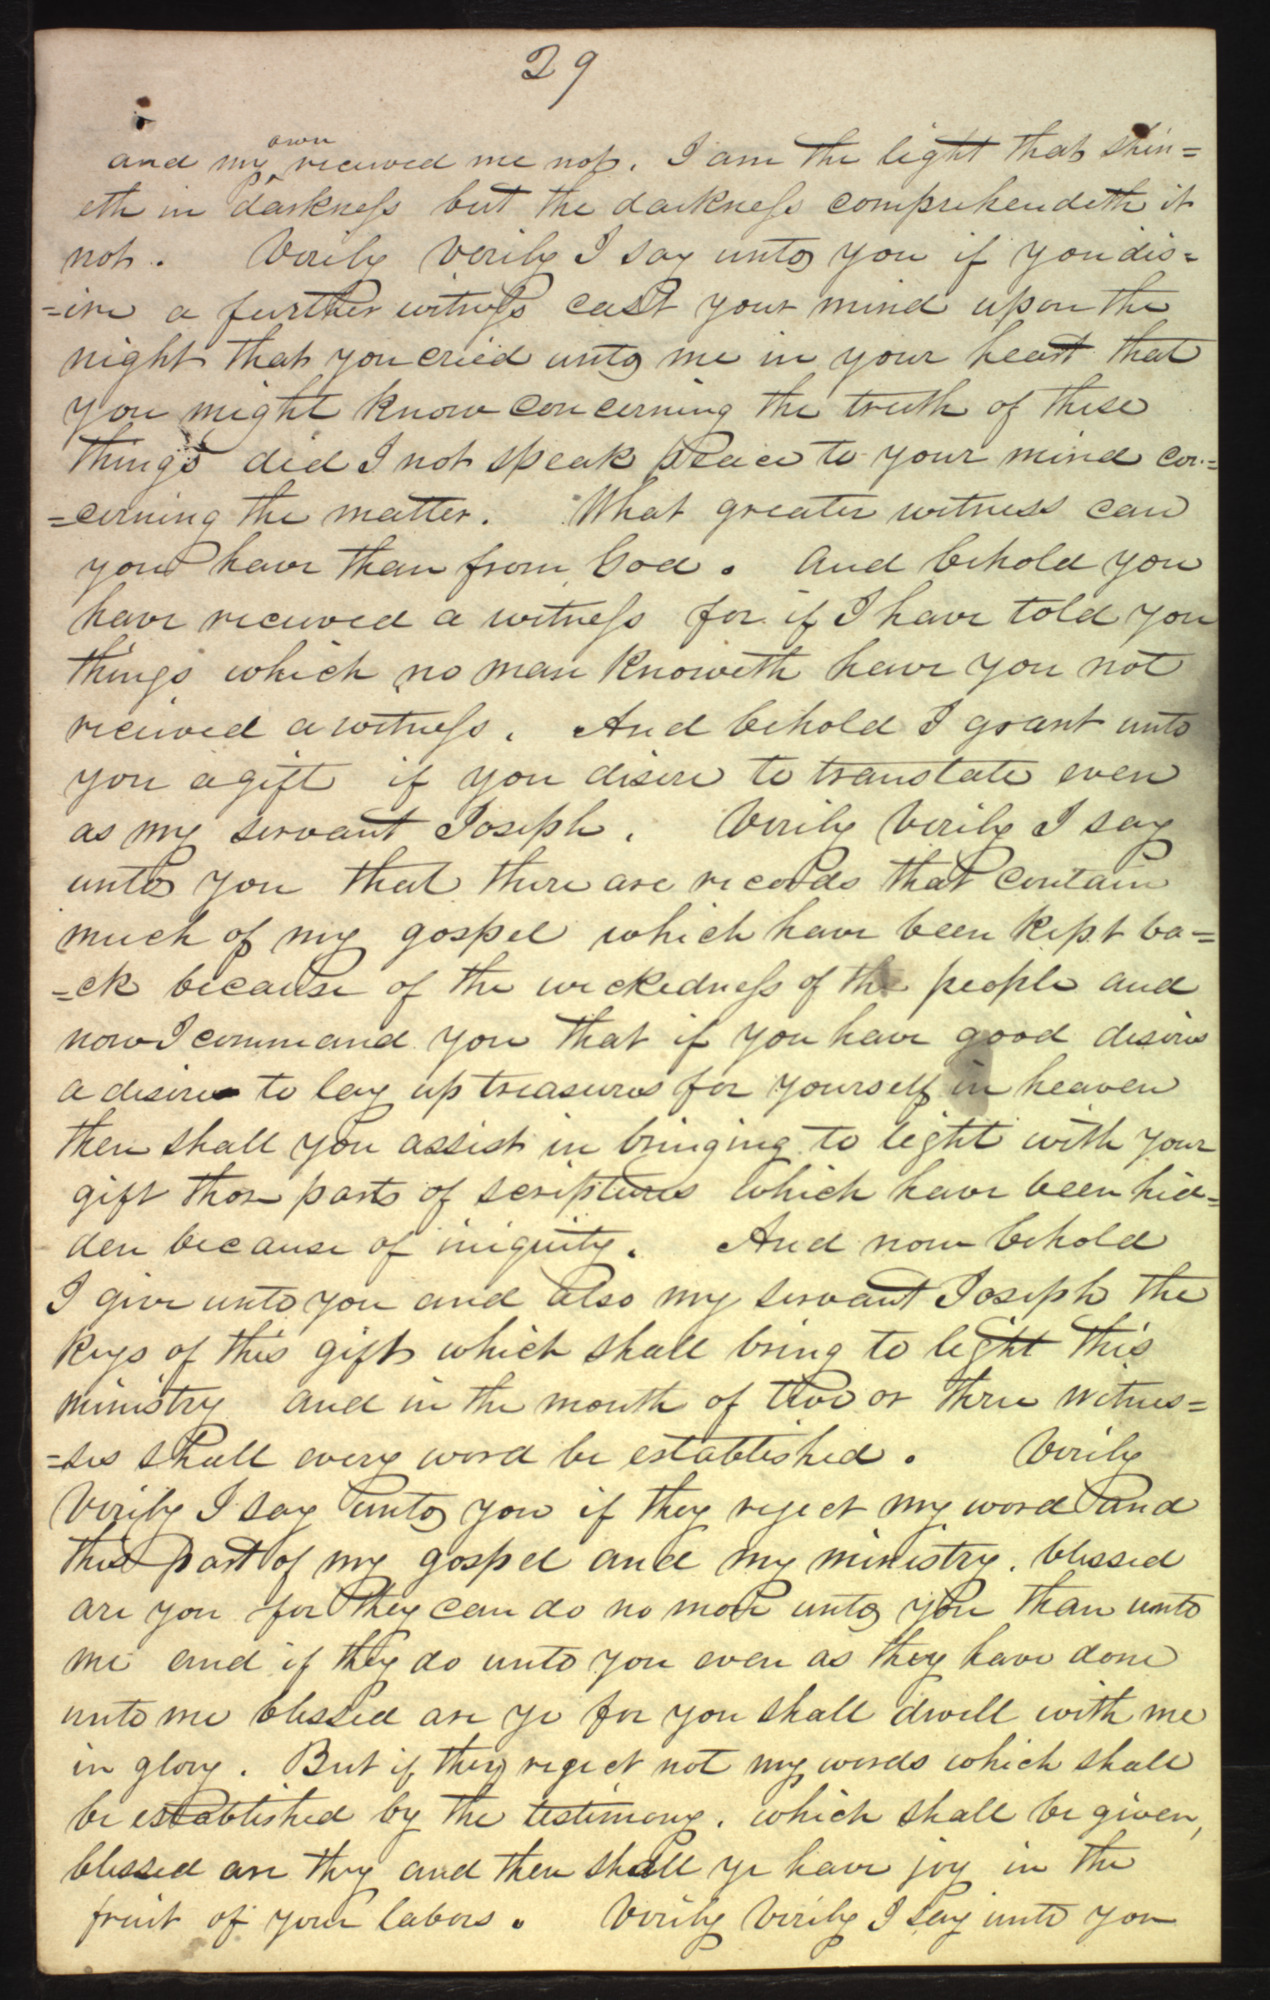 29
own
and my ^ received me not. I am the light that shin=
eth in darkness but the darkness comprehendeth it
not. Verily Verily I say unto you if you dis=
=ire a further witness cast your mind upon the
night that you cried unto me in your heart that
you might know concerning the truth of these
things did I not speak peace to your mind con=
=cerning the matter. What greater witness can
you have than from God. And behold you
have received a witness for if I have told you
things which no man knoweth have you not
received a witness. And behold I grant unto
you a gift if you disire to translate even
as my servant Joseph. Verily Verily I say
unto you that there are records that contain
much of my gospel which have been kept ba=
=ck because of the wickedness of the people and
now I command you that if you have good desires
a desire to lay up treasures for yourself in heaven
then shall you assist in bringing to light with your
gift those parts of scriptures which have been hid=
den because of iniquity. And now behold
I give unto you and also my servant Joseph the
keys of this gift which shall bring to light this
ministry and in the mouth of two or three witnes=
=ses shall every word be established. Verily
Verily I say unto you if they reject my word and
this part of my gospel and my ministry. blessed
are you for they can do no more unto you than unto
me and if they do unto you even as they have done
unto me blessed are ye for you shall dwell with me
in glory. But if they reject not my words which shall
be established by the testimony. which shall be given,
blessed are they and then shall ye have joy in the
fruit of your labors. Verily Verily I say unto you